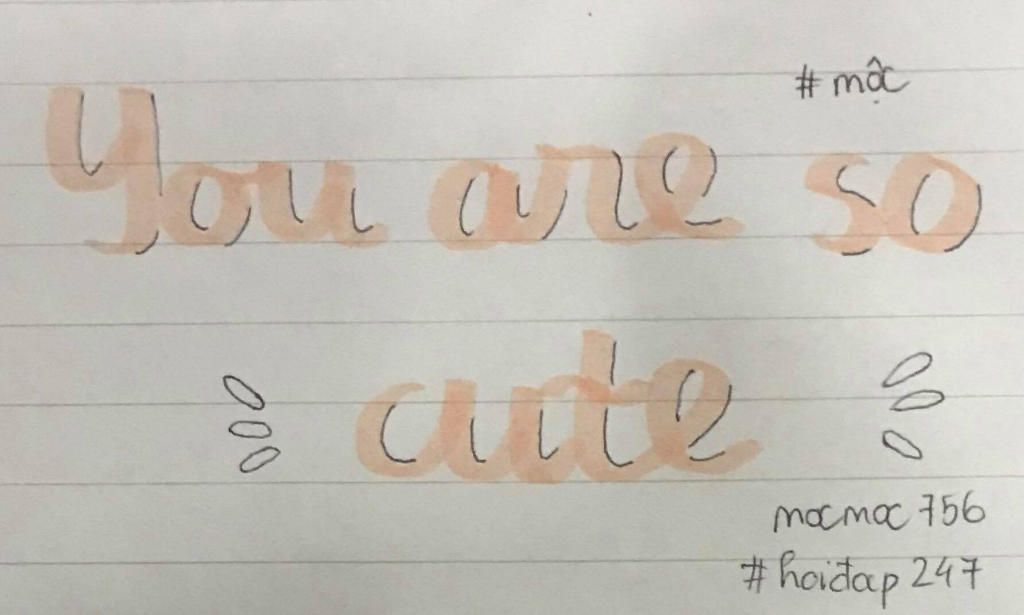 # mộc
You are so
cute
mocmoc 756
# hoiđap 247